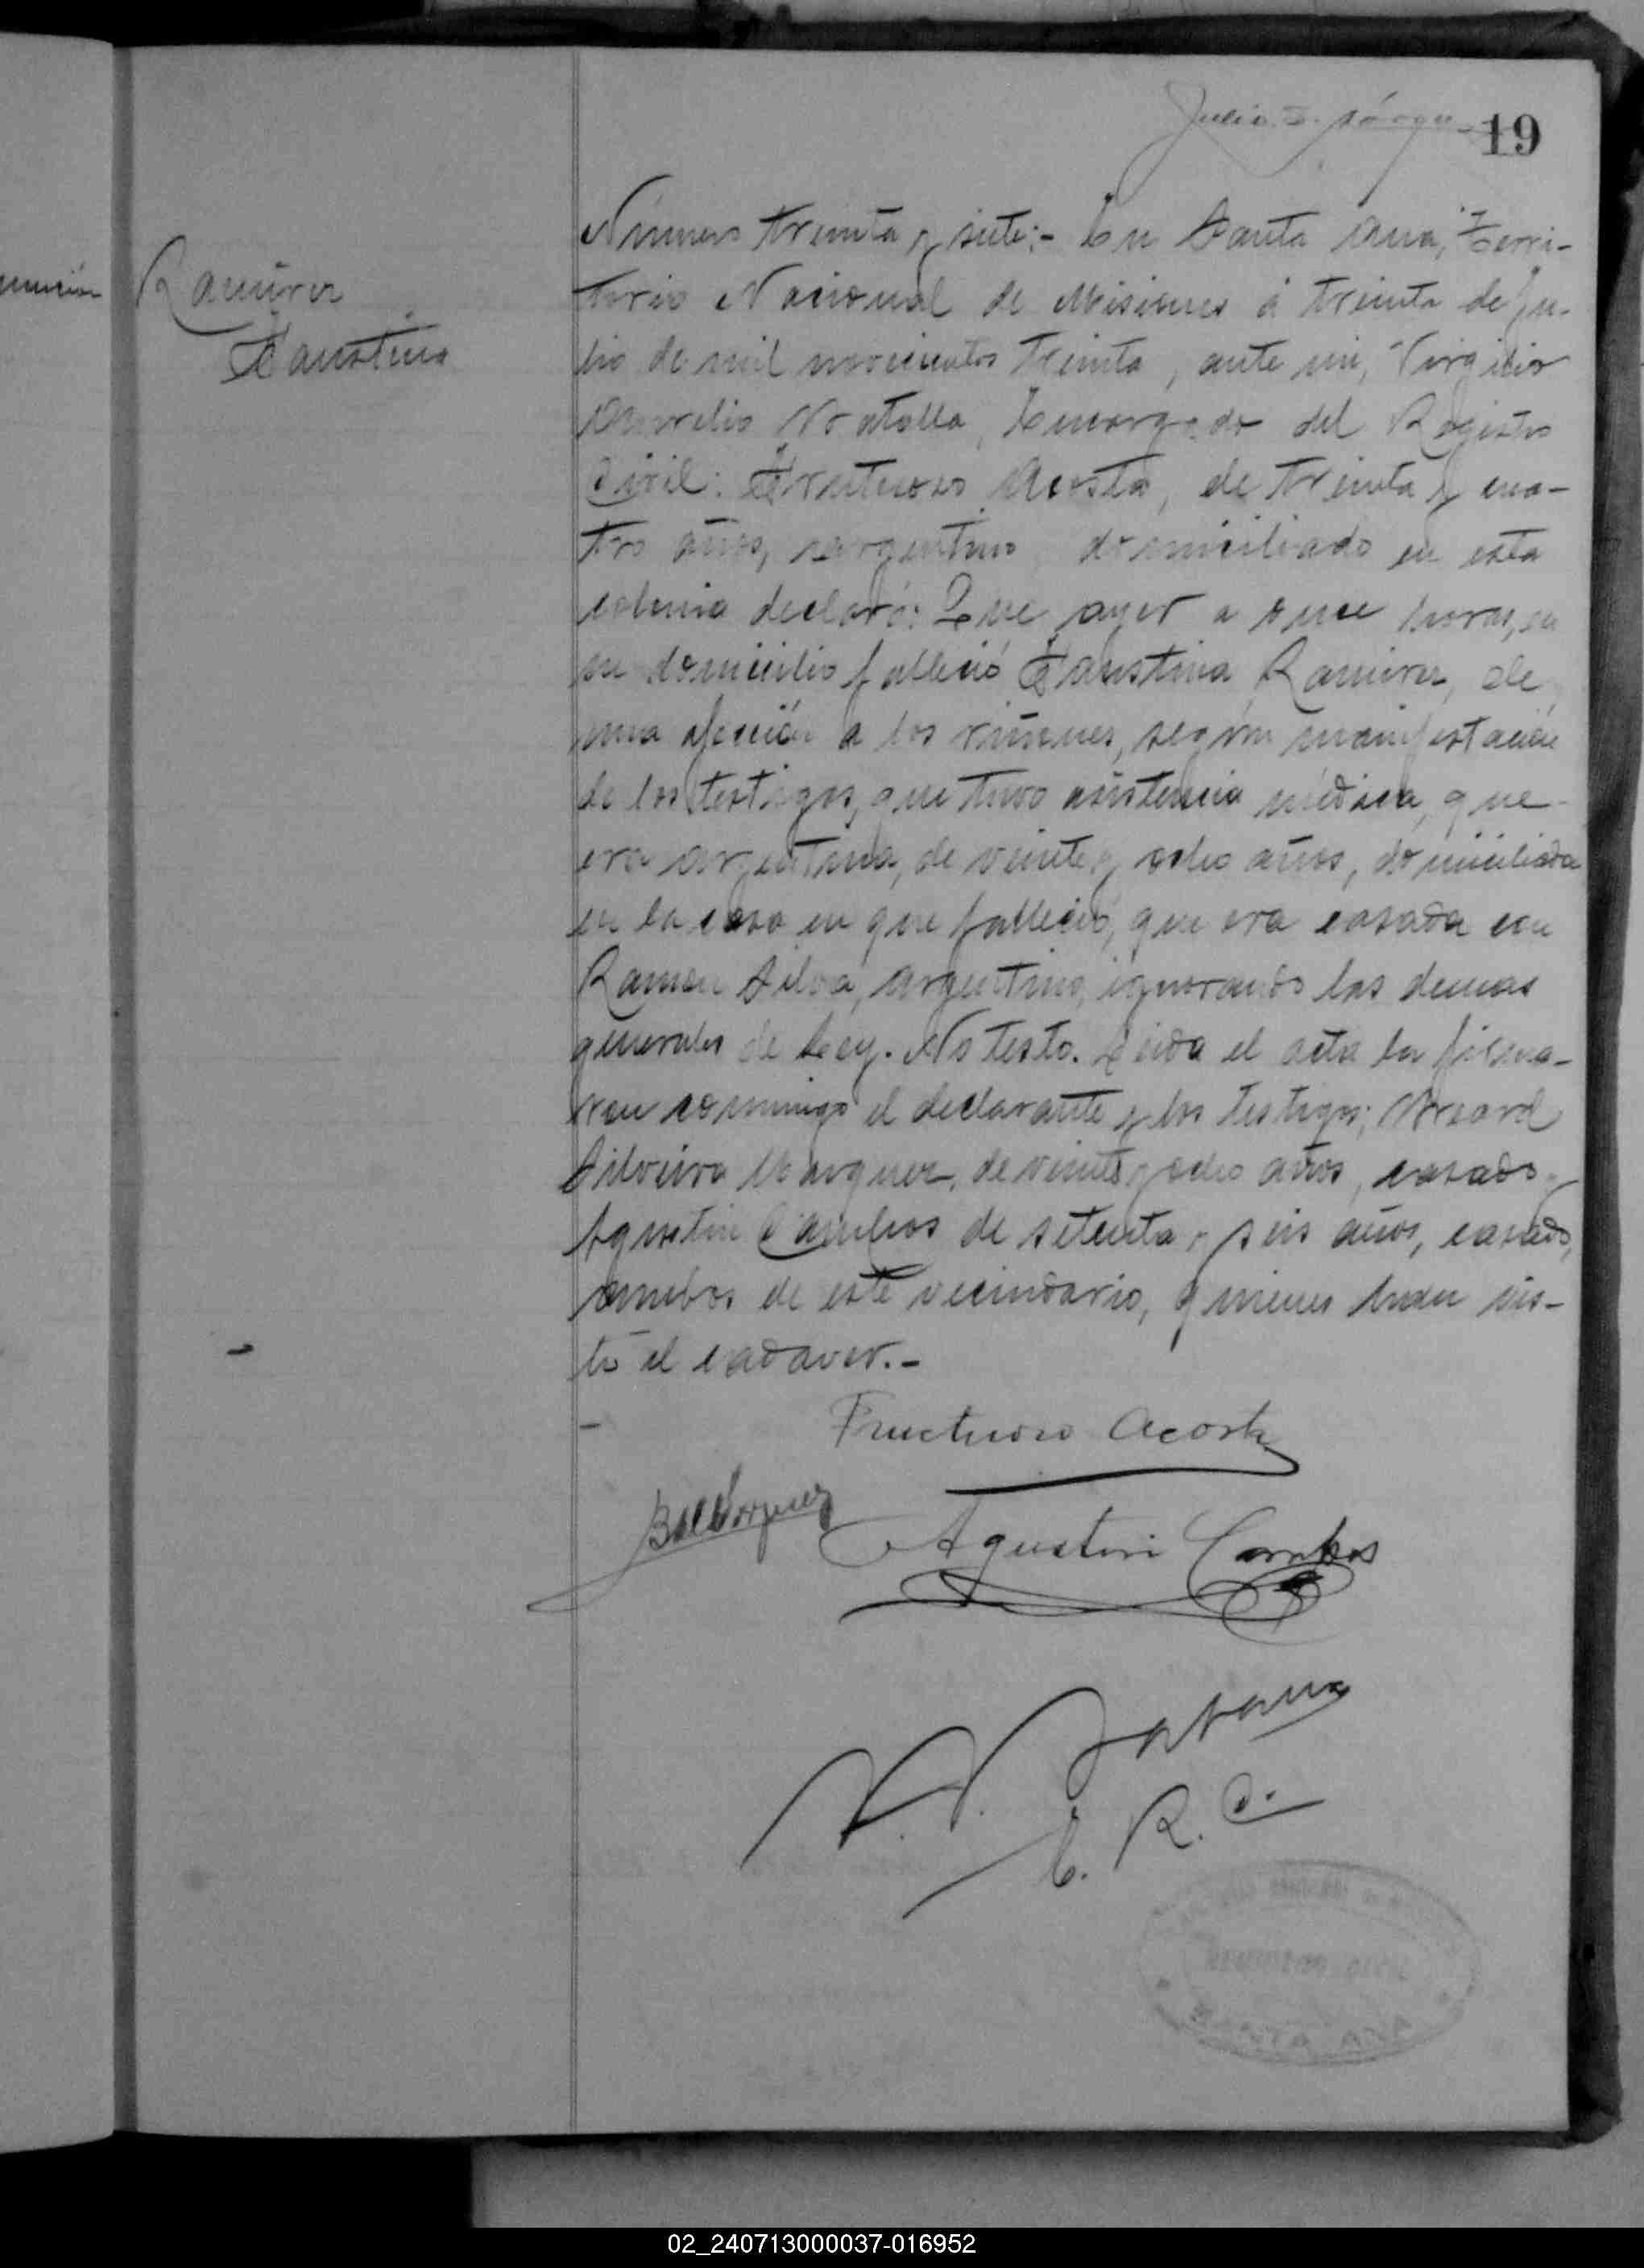 19
Ramirez
Faustina
Número treinta y siete:- En Santa Ana, Terri-
torio Nacional de Misiones á treinta de Ju-
lio de mil novecientos treinta, ante mi, Virgilio
Aurelio, Encargado del Registro
Civil: Fructuoso Acosta, de treinta y cua-
tro años, argentino, domiciliado en esta
colonia declaró: Que ayer a once horas, en
su domicilio falleció Faustina Ramirez, de
una afección a los riñones, según manifestación
de los testigos, que tuvo asistencia médica, que
era argentina, de veinte y ocho años, domiciliada
en la casa en que falleció, que era casada con
Ramon Silva, argentino, ignorando las demas
generales de Ley. No testo. Leida el acta la firma-
ron conmigo el declarante y los testigos;
Silveira Marquez, de veinte y ocho años, casado y
Agustin Campos de setenta y seis años, casado,
ambos de este vecindario, quienes han vis-
to el cadaver.-
Fructuoso Acosta
Agustin Campos
E. R. C.
02_240713000037-016952